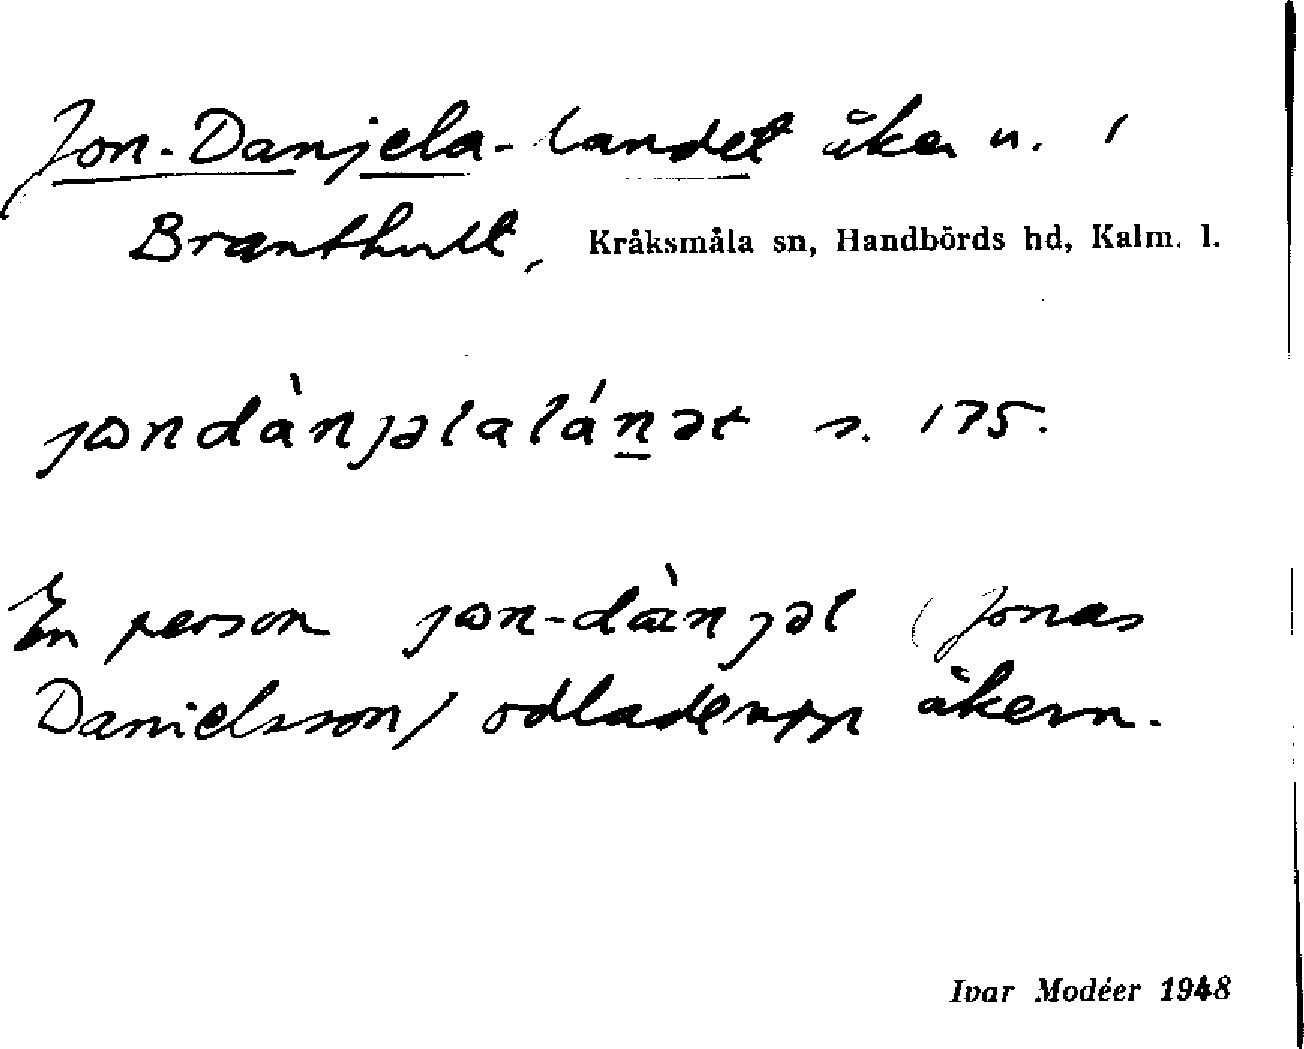 Jon-Danjela-landet åker n. 1
Branthult, Kråksmåla sn, Handbörds hd, Kalm. l.
jɷndànjəlalánət s. 175.
En person jɷn-dànjəl (Jonas
Danielsson) odlade upp åkern.
Ivar Modéer 1948